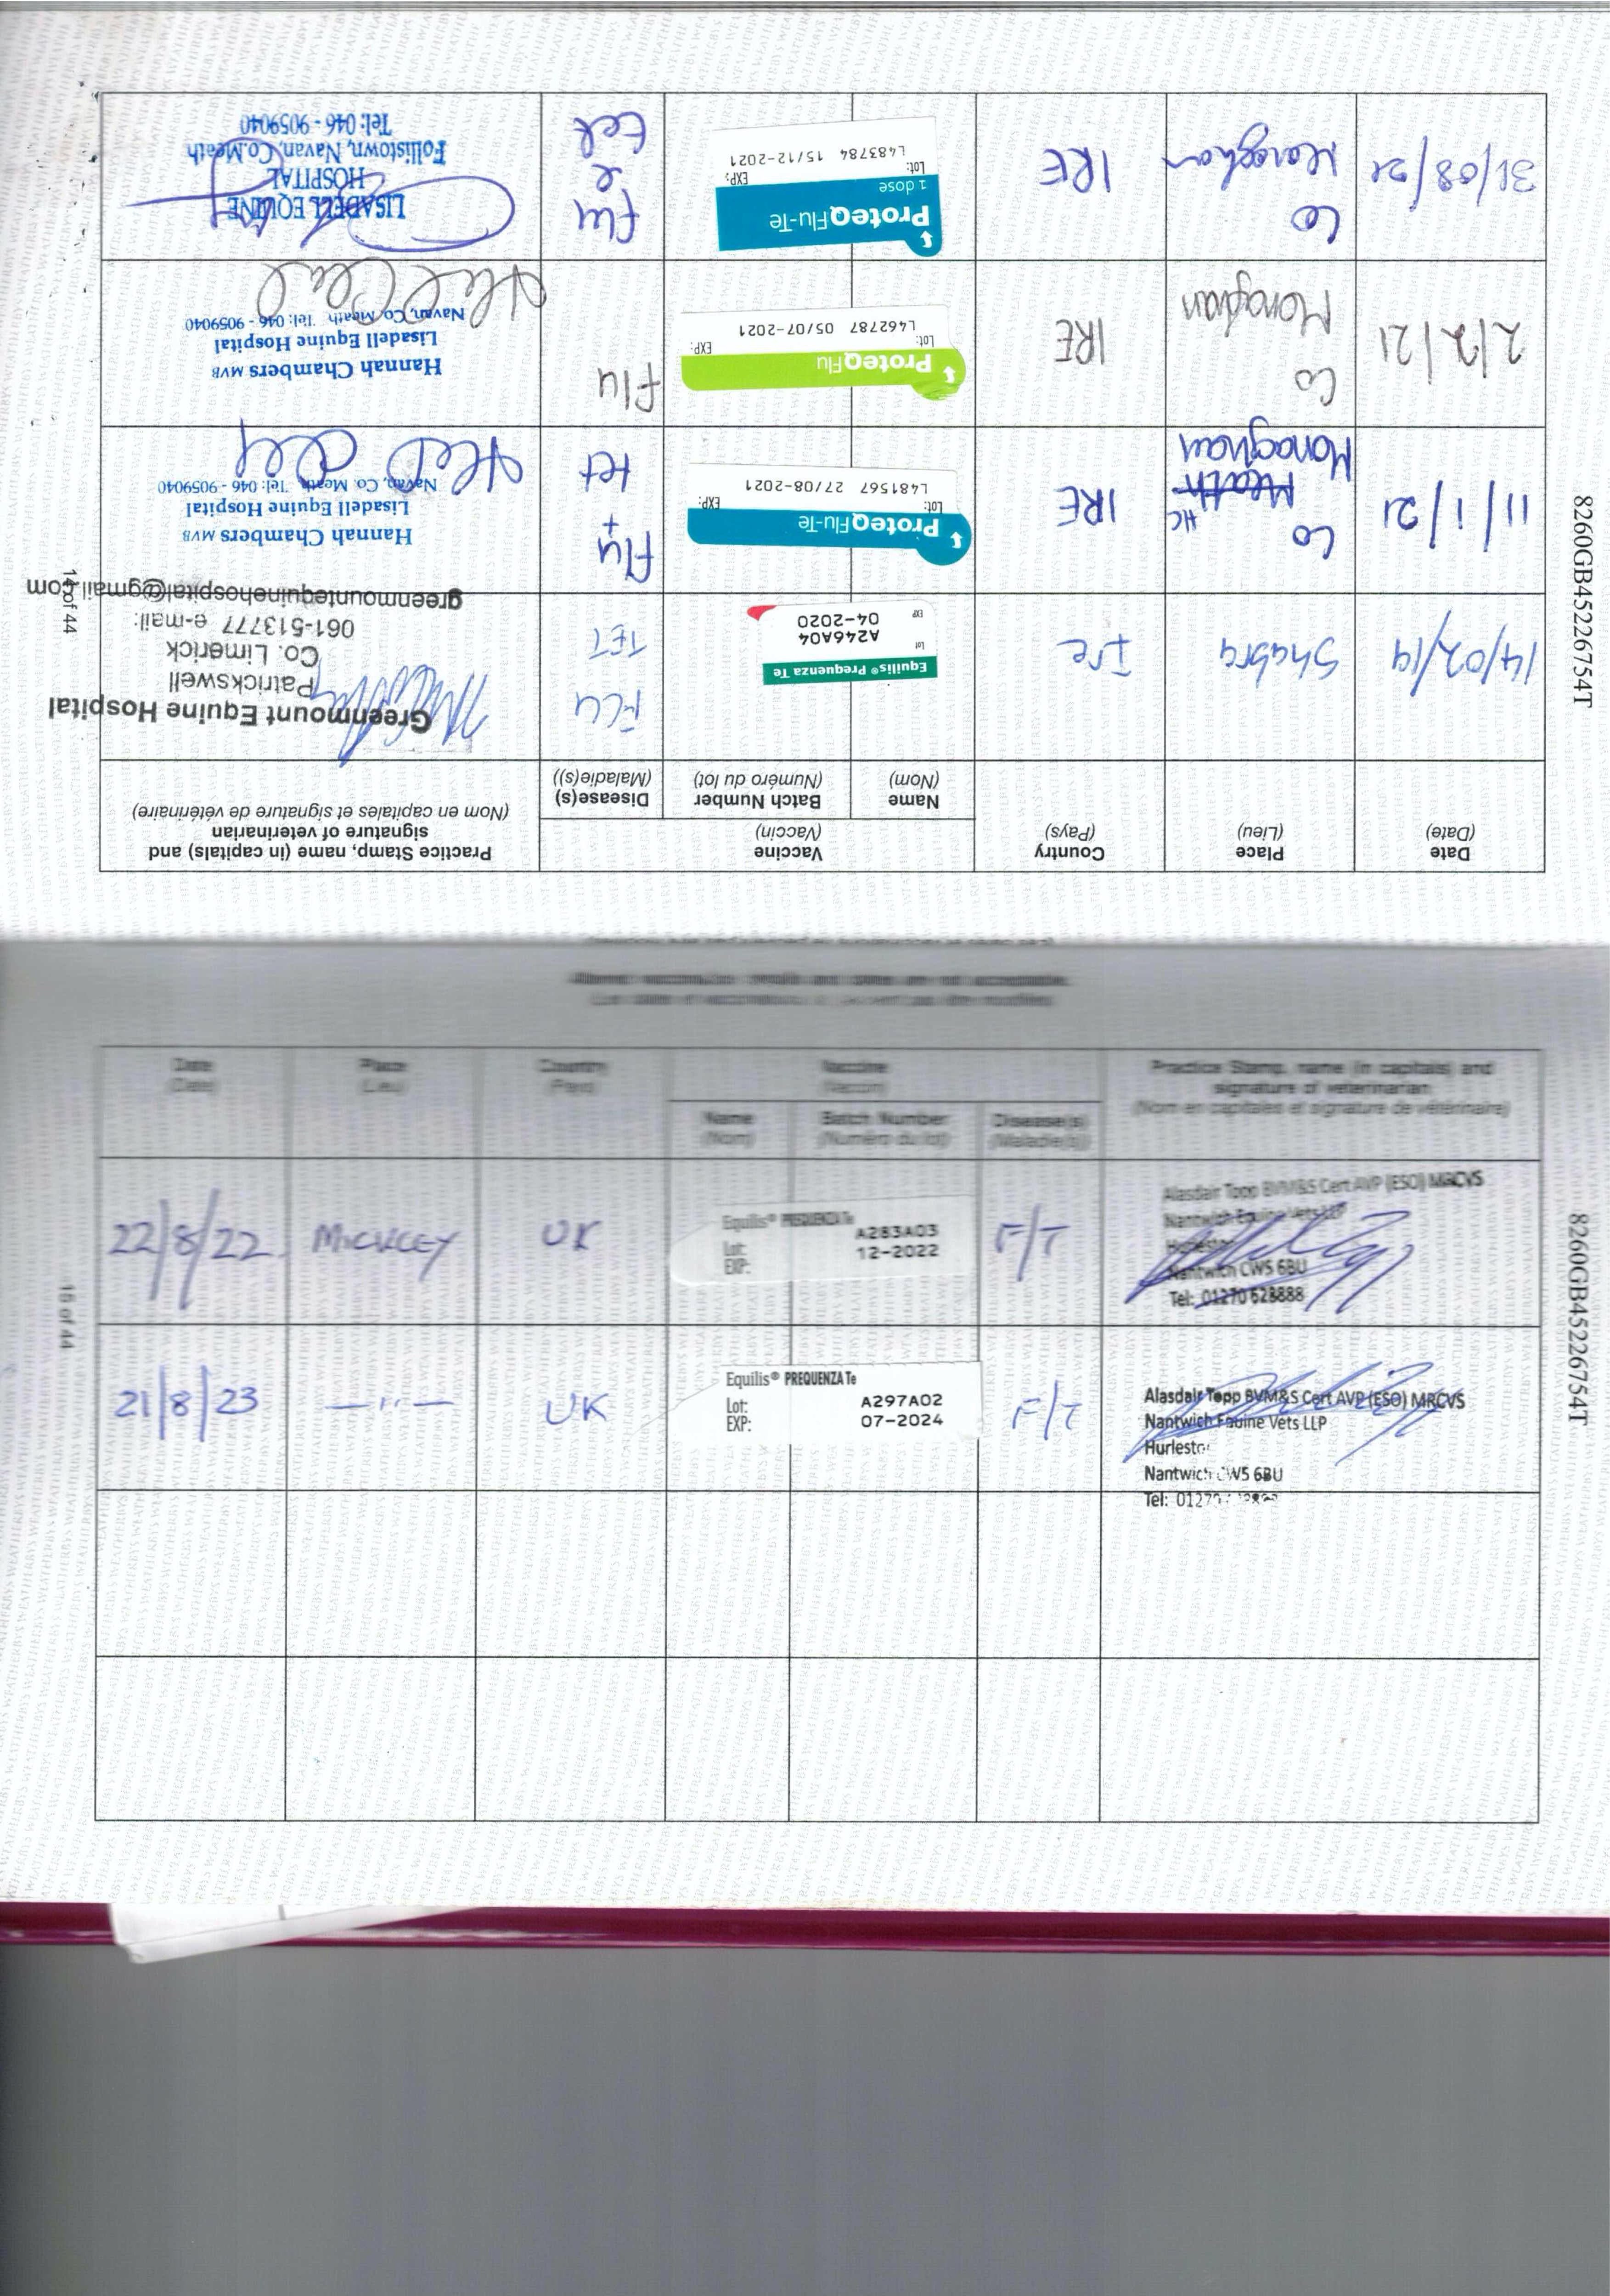 Date
(Date)
Place
(Lieu)
Country
(Pays)
Vaccine
(Vaccin)
Name
(Nom)
Batch Number
(Numéro du lot)
Disease(s)
(Maladie(s))
Practice Stamp, name (in capitals) and
signature of veterinarian
(Nom en capitales et signature de vétérinaire)
14/02/19
Shabra
Ire
Equilis® Prequenza Te
Lot
A246A04
EXP
04-2020
FLU
TET
Greenmount Equine Hospital
Patrickswell
Co. Limerick
061-513777 e-mail:
greenmountequinehospital@gmail.com
11/1/21
Co
HC Meath
Monaghan
IRE
ProteqFlu-Te
Lot: EXP:
L481567 27/08-2021
Flu
+
tet
Hannah Chambers MVB
Lisadell Equine Hospital
Navan, Co. Meath. Tel: 046 - 9059040
2/2/21
Co
Monaghan
IRE
ProteqFlu
Lot: EXP:
L462787 05/07-2021
Flu
Hannah Chambers MVB
Lisadell Equine Hospital
Navan, Co. Meath. Tel: 046 - 9059040
31/08/21
Co
Monaghan
IRE
ProteqFlu-Te
1 dose
Lot: EXP:
L483784 15/12-2021
Flu
e
tet
LISADELL EQUINE
HOSPITAL
Follistown, Navan, Co.Meath
Tel: 046 - 9059040
14 of 44
8260GB45226754T
Date
(Date)
Place
(Lieu)
Country
(Pays)
Vaccine
(Vaccin)
Name
(Nom)
Batch Number
(Numéro du lot)
Disease(s)
(Maladie(s))
Practice Stamp, name (in capitals) and
signature of veterinarian
(Nom en capitales et signature de vétérinaire)
22/8/22
MICKLEY
UK
Equilis® PREQUENZA Te
Lot: A283A03
EXP: 12-2022
F/T
Alasdair Topp BVM&S Cert AVP (ESO) MRCVS
Nantwich Equine Vets LLP
Hurleston
Nantwich CW5 6BU
Tel: 01270 628888
21/8/23
—"—
UK
Equilis® PREQUENZA Te
Lot: A297A02
EXP: 07-2024
F/T
Alasdair Topp BVM&S Cert AVP (ESO) MRCVS
Nantwich Equine Vets LLP
Hurlesto
Nantwich CW5 6BU
Tel: 01270
15 of 44
8260GB45226754T